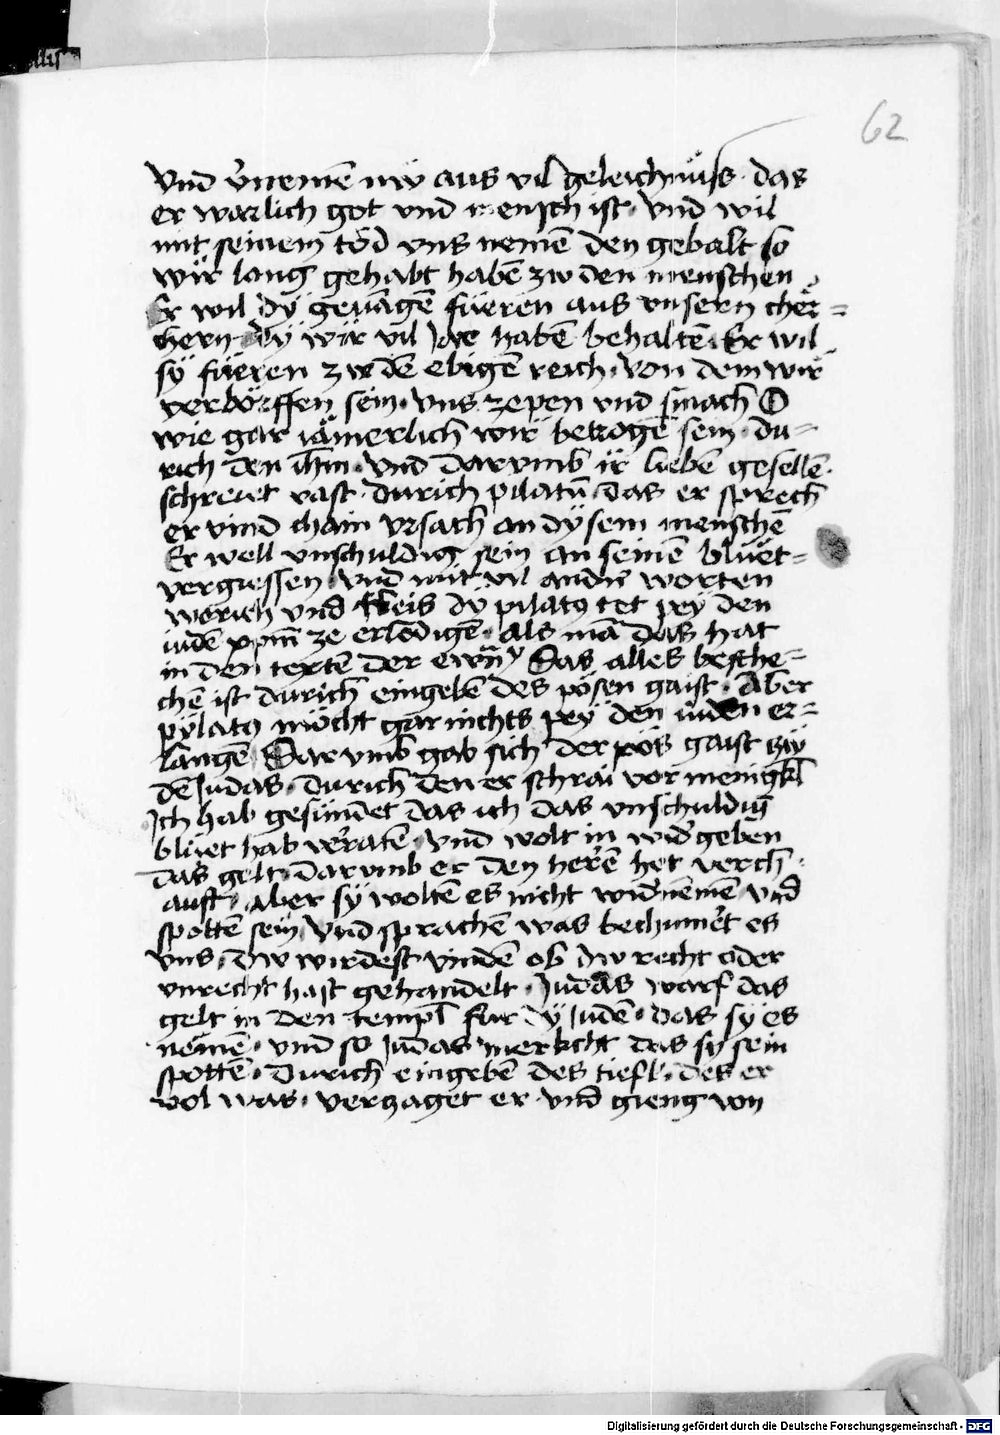 62
Vnd v̓nemē nw̄ aus vil geleichnüss · das
er warlich got vnd mensch ist · vnd wil
mit seinem tôd vns nemē den gebalt so
wir lang gehabt habē zw den menschen
Er wil dÿ geuāgē füeren aus vnsern cher=
chern dÿ wir vil jare habē behaltē · Er wil
sÿ füeren zw dē ebigē reich · von dem wir
verborffen sein · vns zepen vnd smach O
wie gar iämerlich wir betrogē sein · du=
rich den ihm̄ · vnd darvmb ir liebē gesellē ·
schreiet vast durich pilatū das er sprech
er vind chain vrsach an dÿsem menschē
Er well vnschuldig sein an seinē bluet=
vergiessen · vnd mit vil andn̄ worten
worich vnd fleis dÿ pilatꝯ tet peÿ den
iudē xpm̄ ze erlödigē · als mā das hat
in den textē der ewāⁿy Das alles besche=
chē ist durich eingebē des pösen gaist · Aber
pÿlatꝯ möcht gar nichts peÿ den iuden er=
langē Darvmb gab sich der pös gaist zw
dē Judas · durich den er schrai vor menigkl̄
Ich hab gesündet das ich das vnschuldig
blüet hab v̓ratē · vnd wolt in wid̓geben
das gelt · darvmb er den herē het verch ·
auft · aber sÿ woltē es nicht wid̓nēmē vnd
spottē sein vnd sprachē was bechumert es
vns · dw wirdest vindē ob dw recht oder
vnrecht hast gehandelt · Judas warf das
gelt in den templ̄ fur dÿ Judē · das sÿ es
nämē · vnd so Judas merkcht das sÿ sein
spottē · durich eingebē des tiefl · des er
vol was · verzaget er vnd gieng von
Digitalisierung gefördert durch die Deutsche Forschungsgemeinschaft - DFG